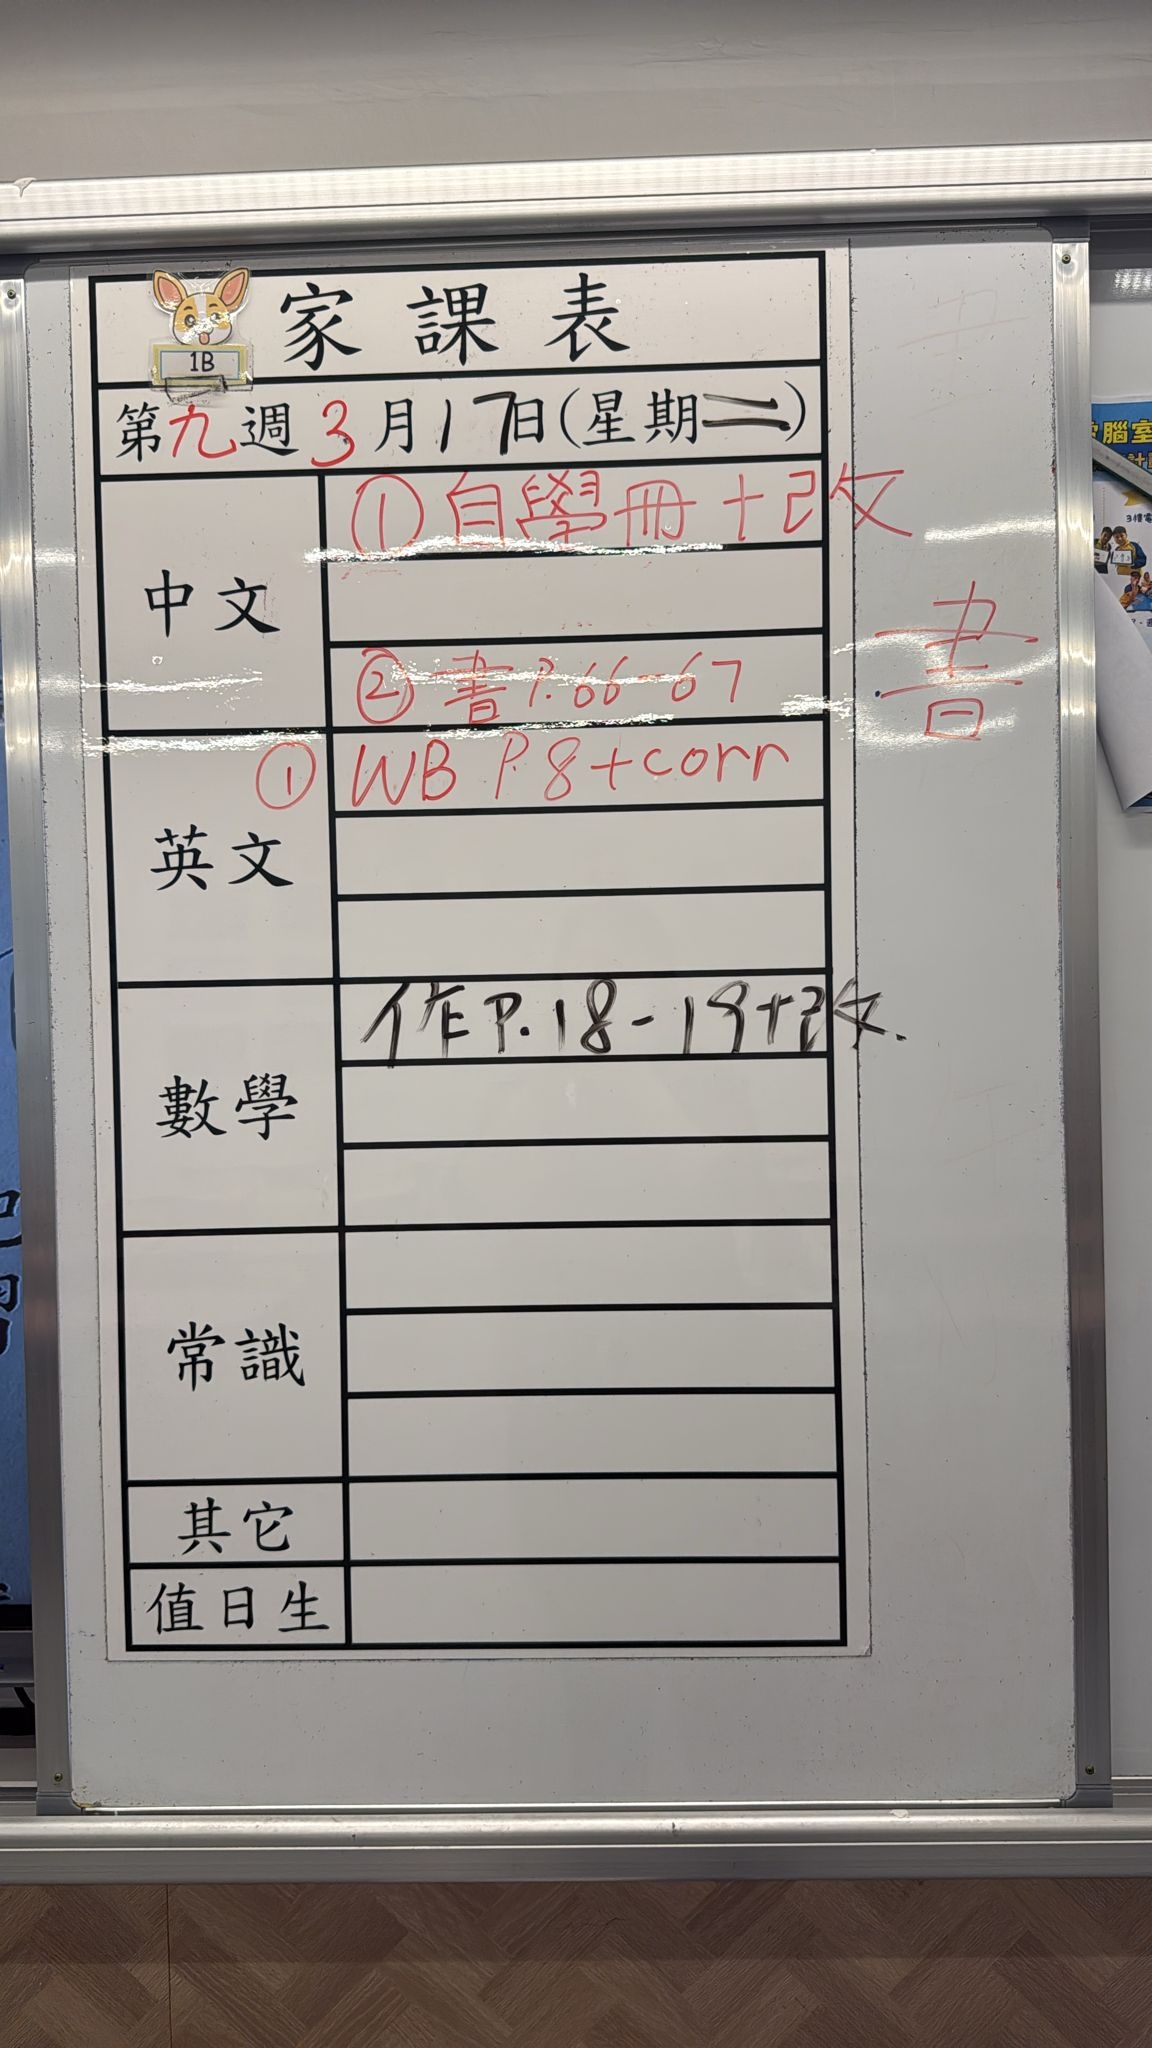 家課表
1B
第九週3月17日(星期二)
中文
①自學冊+改
②書P.66-67
書
英文
①WB P.8+corr
數學
作P.18-19+改.
常識
其它
值日生
腦室